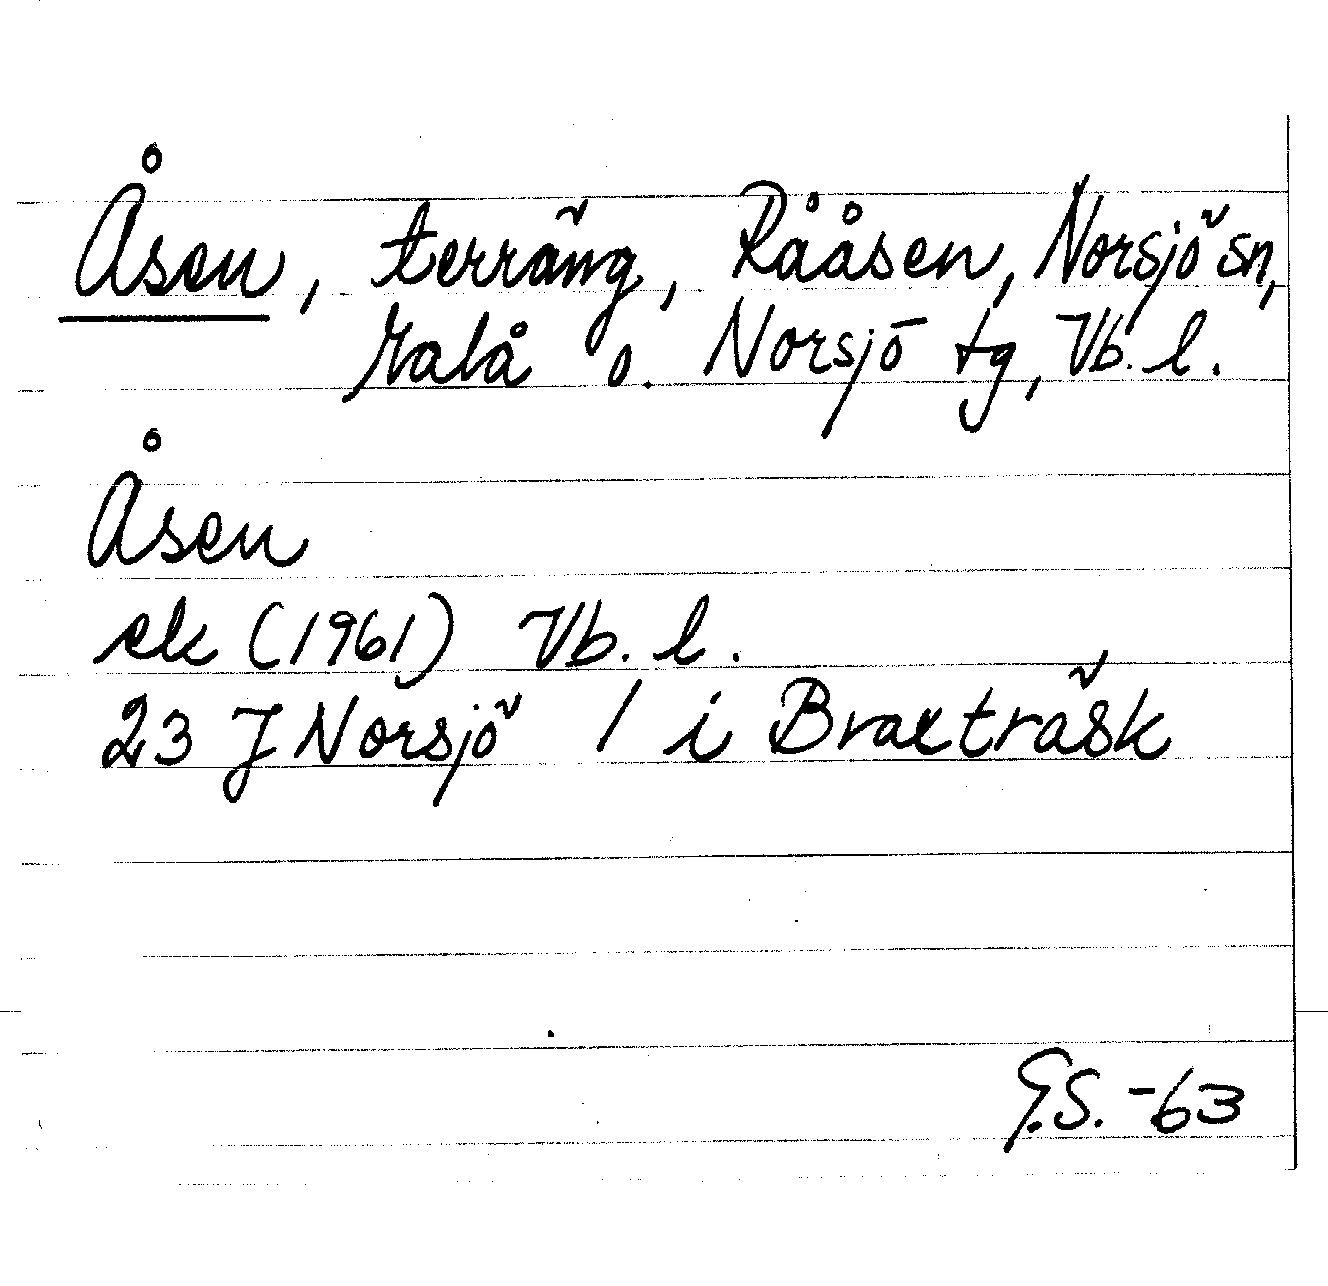 Åsen, terräng, Rååsen, Norsjö sn,
Malå o. Norsjö tg, Vb. l.
Åsen
ek (1961) Vb. l.
23 J Norsjö / i Braxträsk
G.S. -63